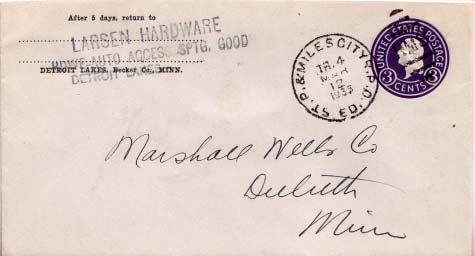 After 5 days, return to
LARSEN HARDWARE
HDWE-AUTO ACCESS-SPTG. GOOD
DETROIT LAKES, Becker Co., MINN.
DETROIT LAKES
ST. P. & MILES CITY R.P.O.
TR. 4
MAR
12
1935
ED.
UNITED STATES POSTAGE
3 3
CENTS
Marshall Wells Co
Duluth
Minn